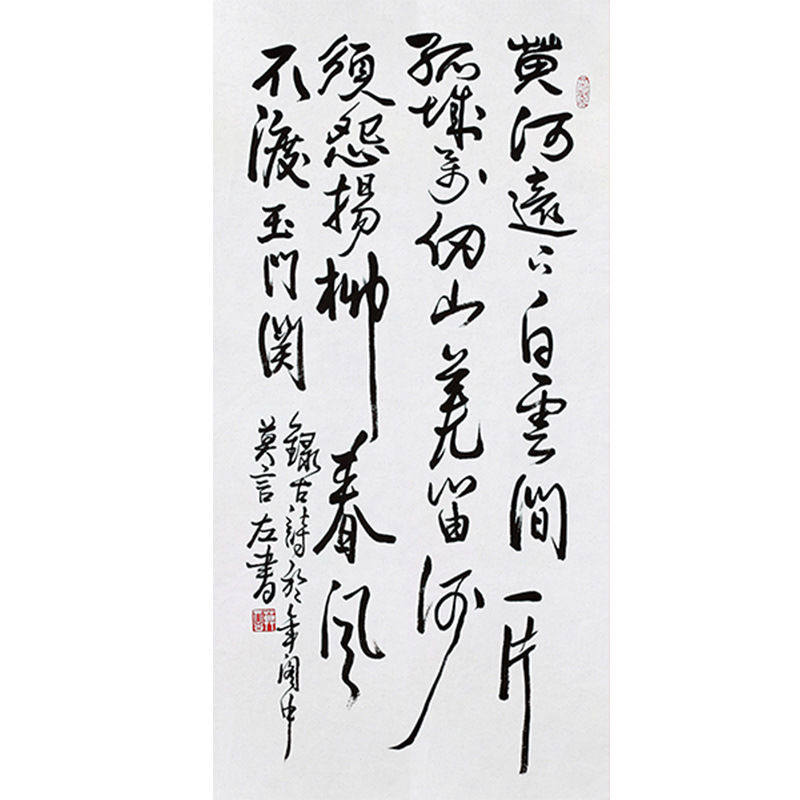 黄河遠下白雲間一片
孤城萬仞山羌笛何
須怨揚柳春風
不渡玉門関
錄古詩於年阁中
莫言左書